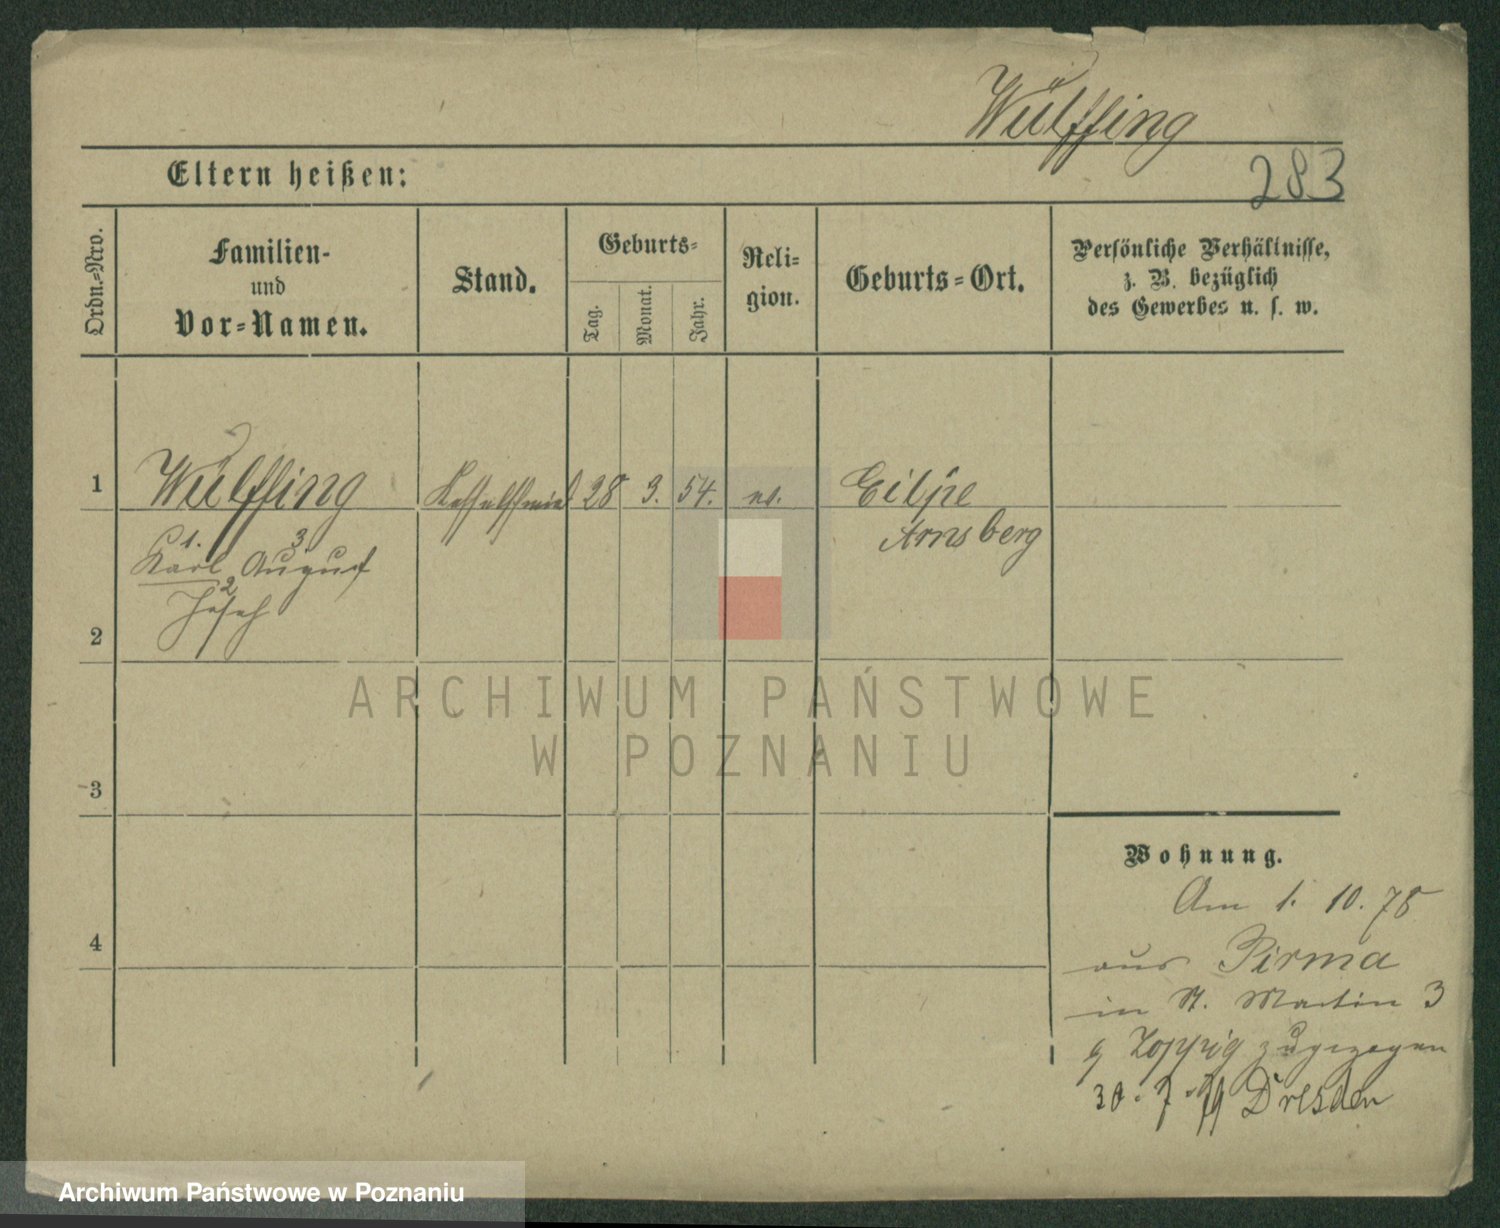 Wülffing
Eltern heißen:
283
Ordn.-Nro.
Familien-
und
Vor-Namen.
Stand.
Geburts-
Tag.
Monat.
Jahr.
Reli-
gion.
Geburts-Ort.
Persönliche Verhältnisse,
z. B. bezüglich
des Gewerbes u. s. w.
1
Wülffing
Kesselschmied
28
3.
54.
ev.
Eilpe
Arnsberg
1. 3
Karl August
2
Joseph
2
ARCHIWUM PAŃSTWOWE
W POZNANIU
3
Wohnung.
4
Am 1. 10. 78
aus Pirma
in St. Martin 3
zugezogen
30. 7. 79 Dresden
Archiwum Państwowe w Poznaniu